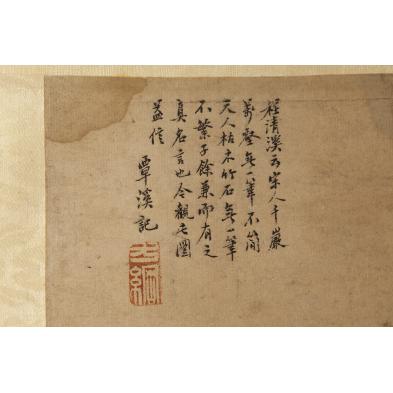 程清溪云宋人千巖
萬壑無一筆不簡
天人枯木竹石無一筆
不繁予餘兼而有之
真名言也今觀此圖
益信
覃溪記
方綱